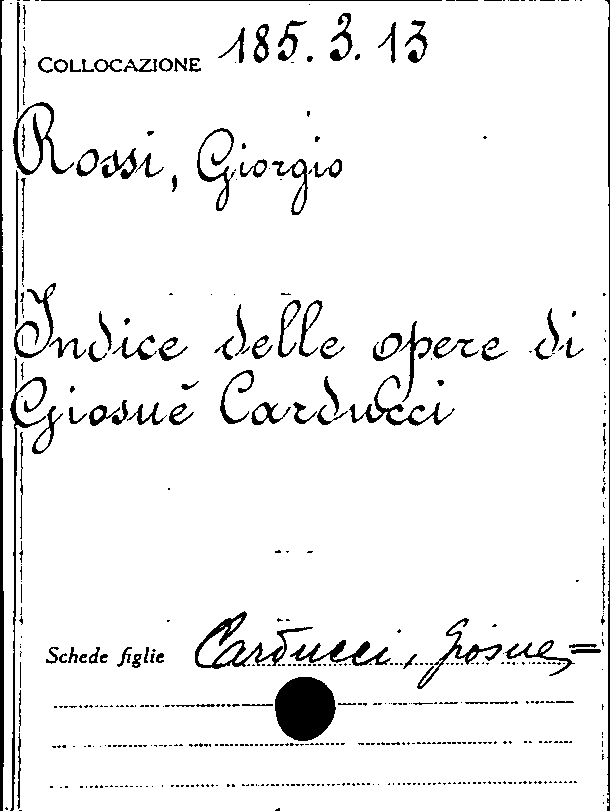 COLLOCAZIONE 185.3.13
Rossi, Giorgio
Indice delle opere di
Giosuè Carducci
Schede figlie Carducci, Giosue=